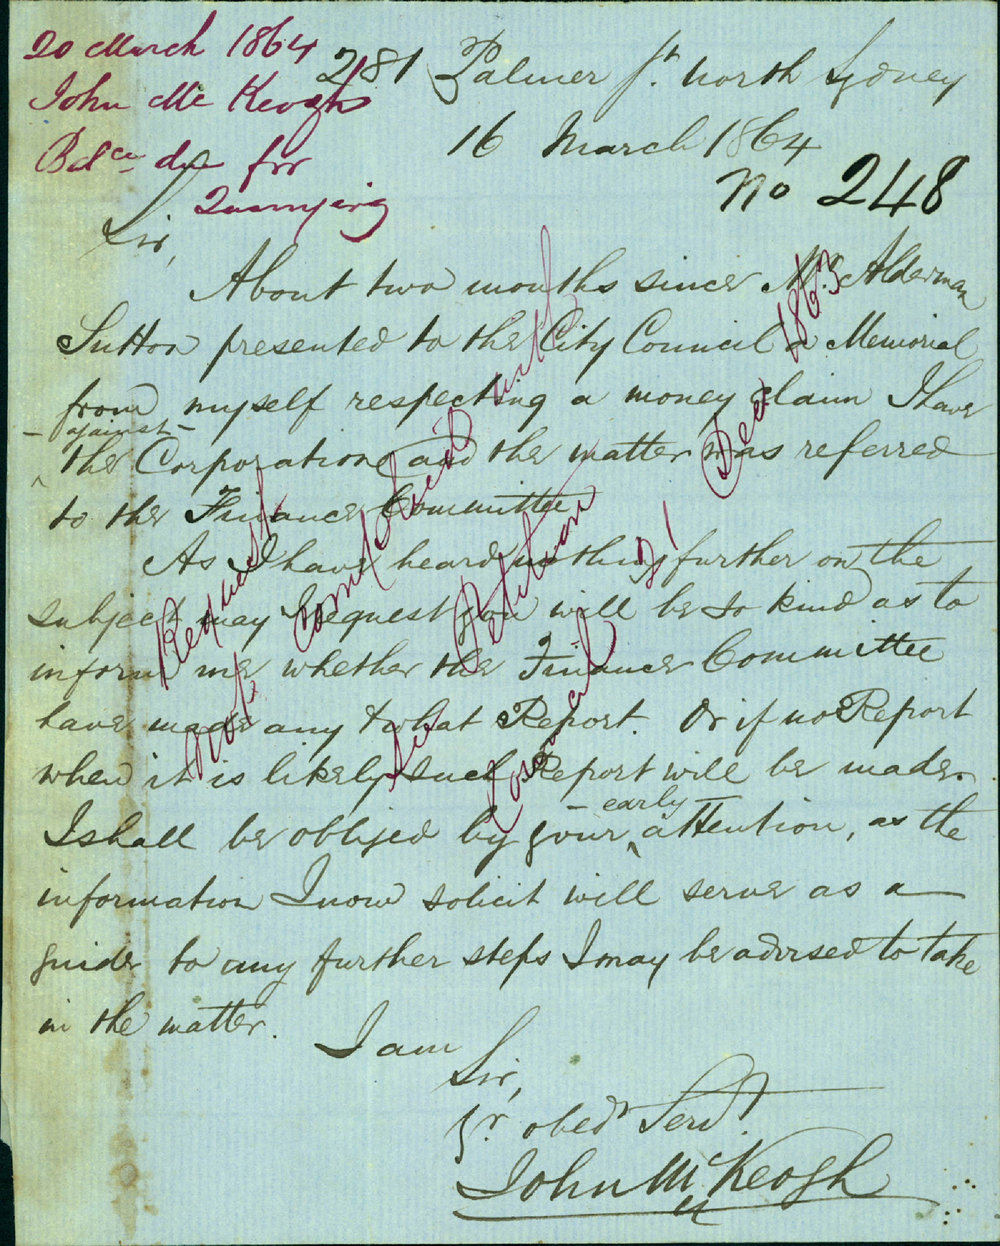 20 March 1864
John Mc Keogh
Balce due for
Quarrying
281 Palmer St. North Sydney
16 March 1864
No 248
Sir,
About two months since Mr. Alderman
Sutton presented to the City Council a Memorial
from myself respecting a money claim I have
- against -
^ the Corporation and the matter was referred
to the Finance Committee
As I have heard nothing further on the
subject may I request you will be so kind as to
inform me whether the Finance Committee
have made any & what Report. Or if no Report
when it is likely such Report will be made.
I shall be obliged by your ^ - early - attention, as the
information I now solicit will serve as a
guide to any further steps I may be advised to take
in the matter.
I am
Sir,
Yr. obedt Servt.
John McKeogh
Request
not complied with
See Petition
Council 21 Dec 1863